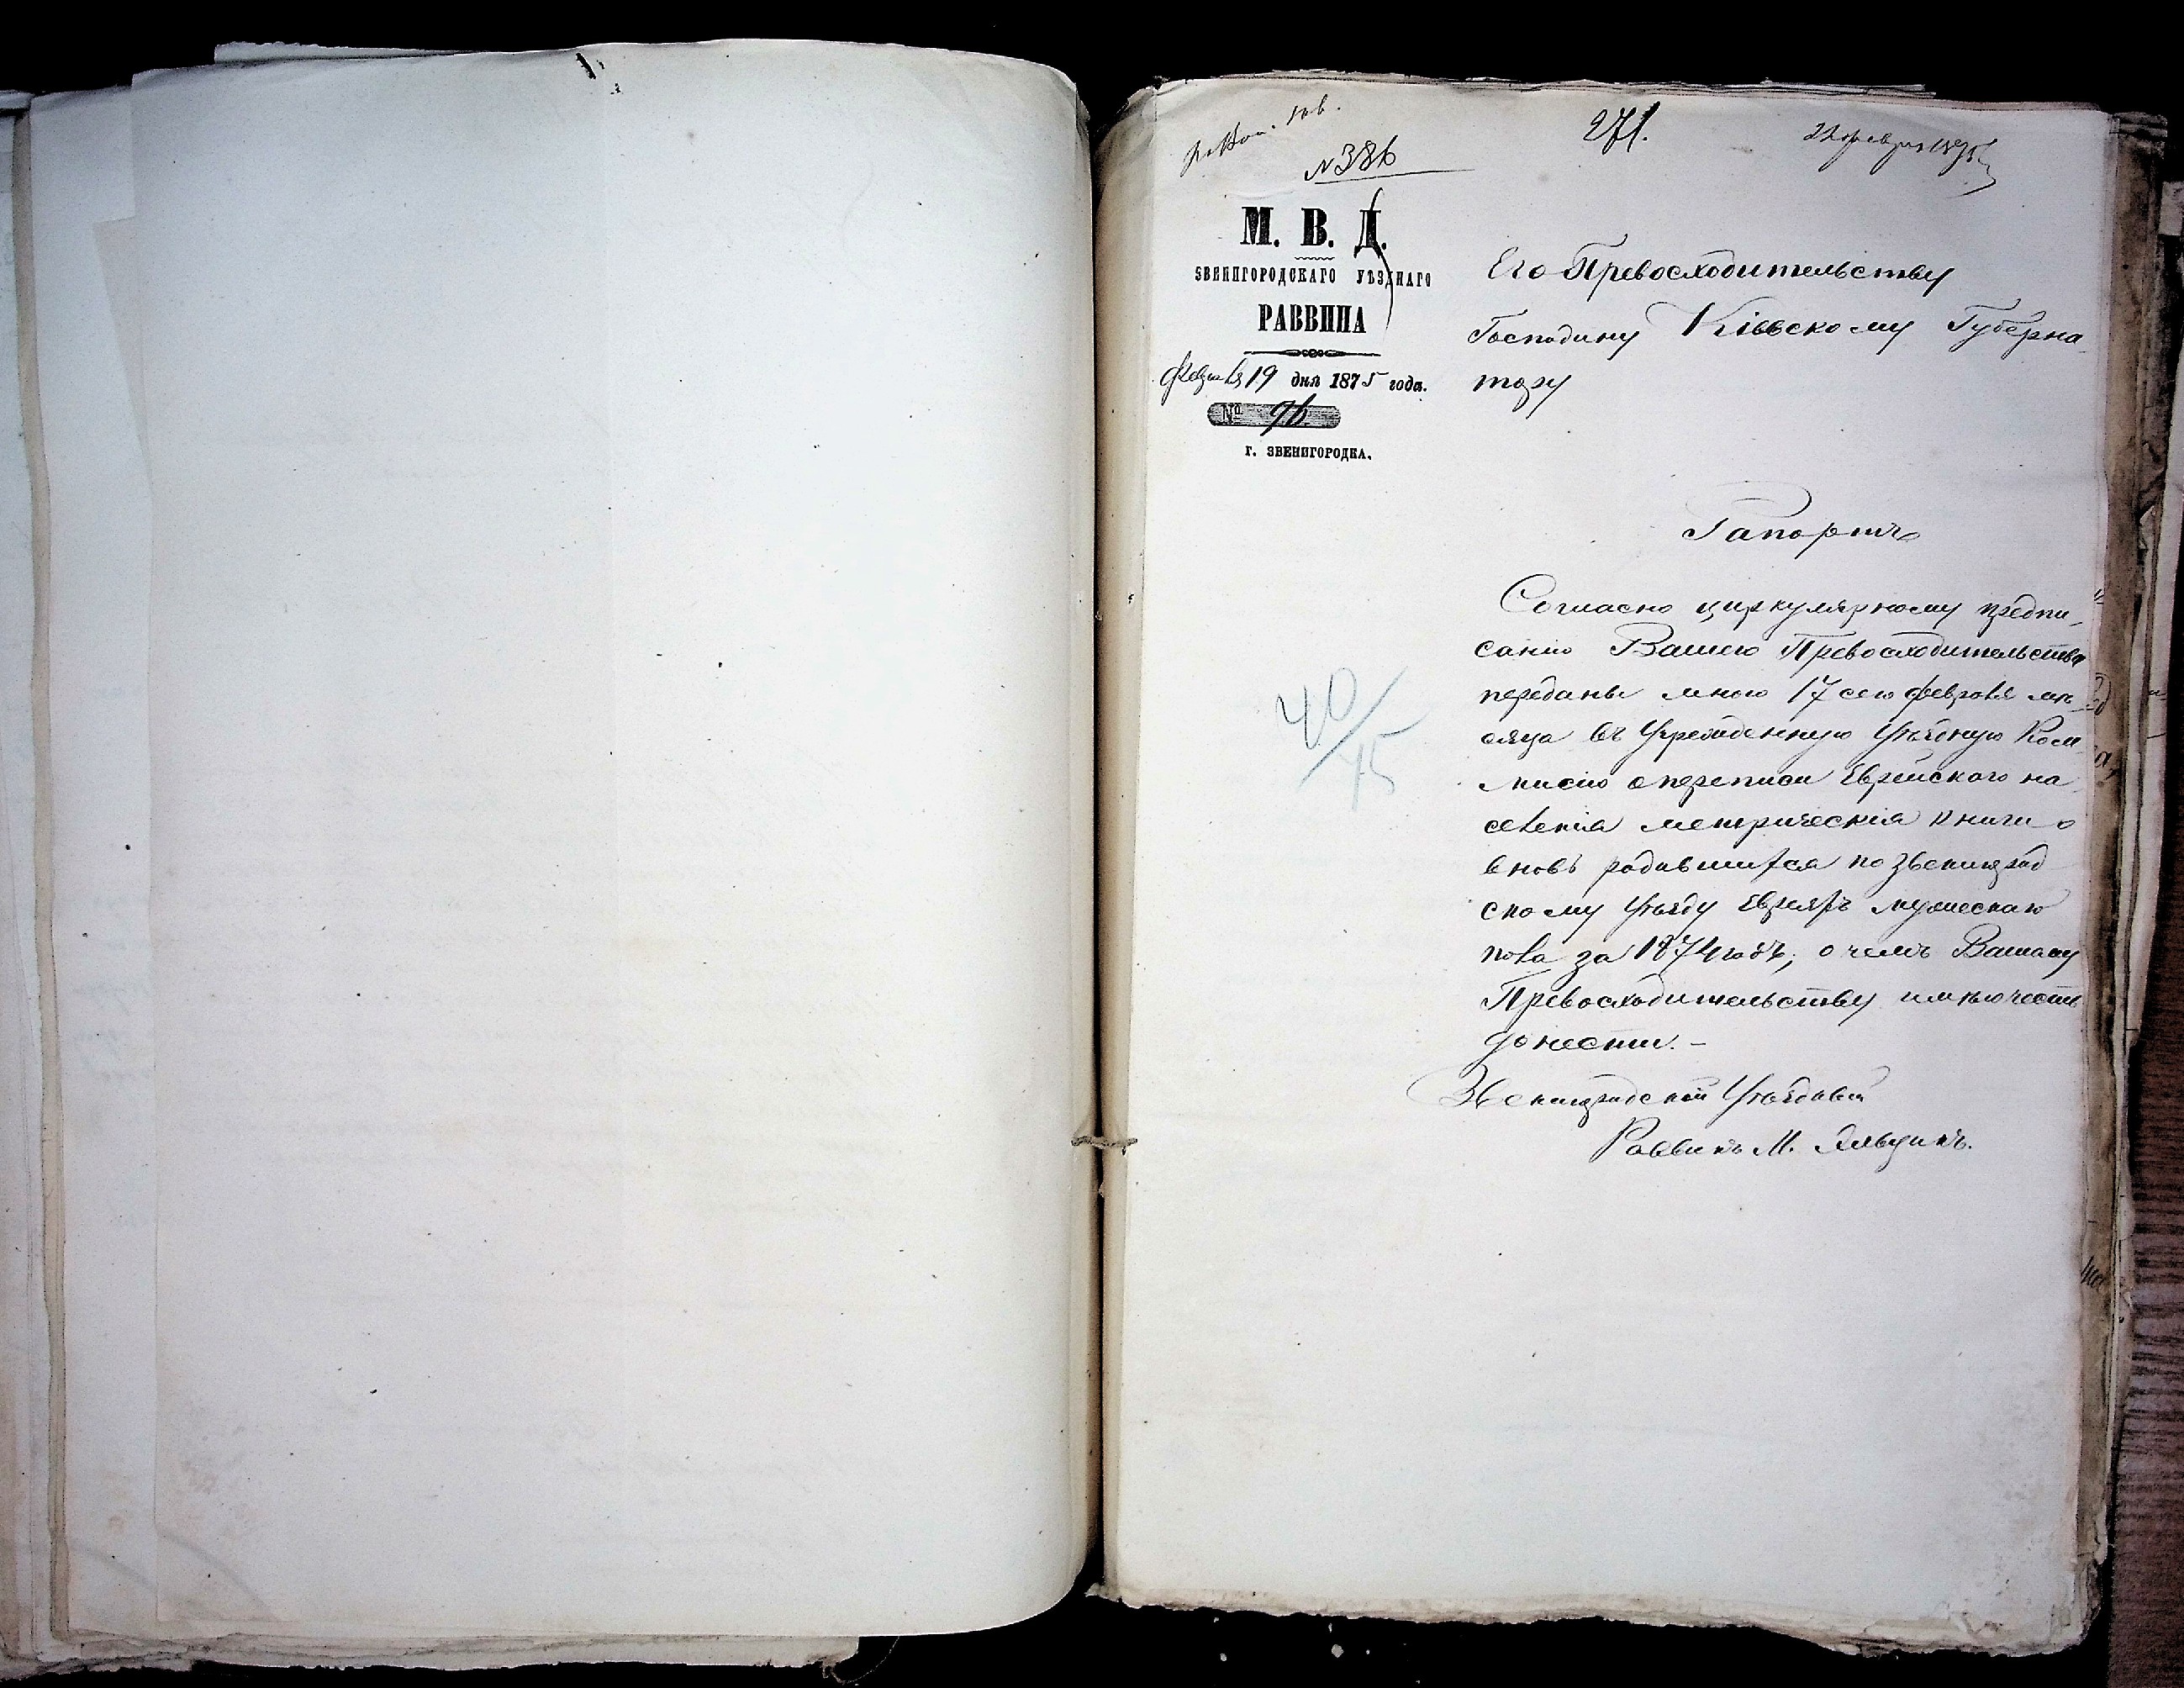 № 386
271.
22 февраля 1875
М. В. Д.
ЗВЕНИГОРОДСКАГО УѢЗДНАГО
РАВВИНА
Февраля 19 дня 1875 года.
№ 96
г. ЗВЕНИГОРОДКА.
Его Превосходительству
Господину Кіевскому Губерна-
тору
Рапортъ
Согласно циркулярному предпи-
санію Вашего Превосходительства
переданы мною 17 сего февраля мѣ-
сяца въ Учрежденную Уѣздную Ком-
мисію о переписи Еврейскаго на-
селенія метрическія книги о
вновь родившихся по Звенигород
скому Уѣзду Евреяхъ мужескаго
пола за 1874 годъ; о чемъ Вашему
Превосходительству имѣю честь
донести. -
Звенигородскій Уѣздный
Раввинъ М.
40/75